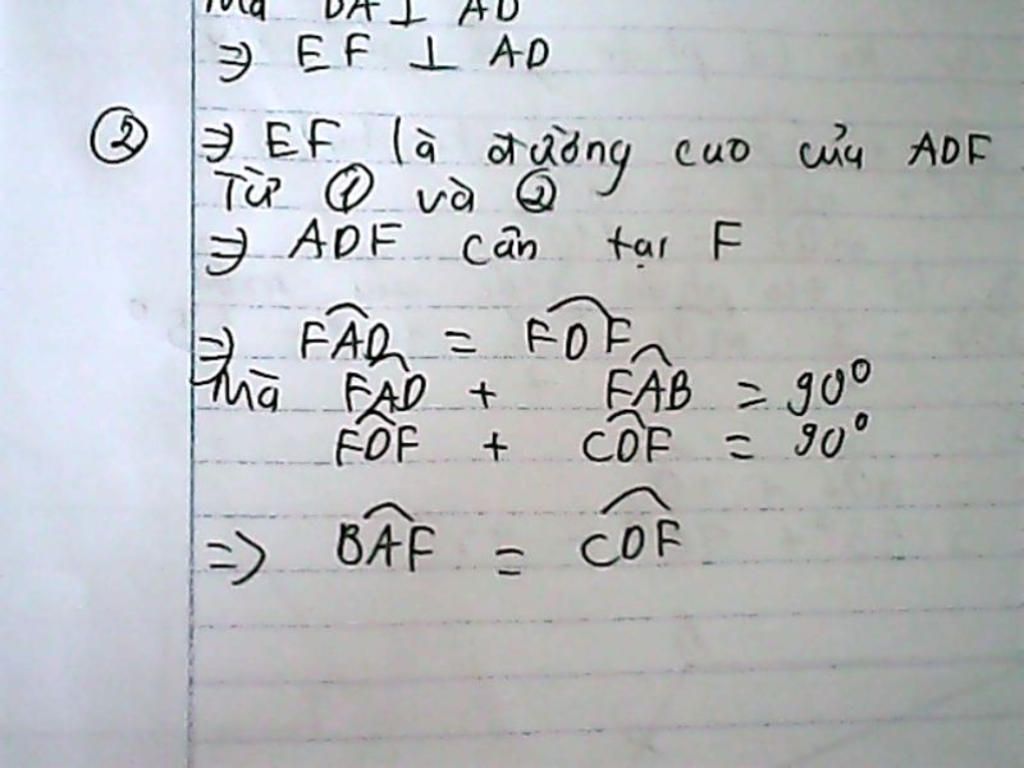 Mà BA ⊥ AD
=> EF ⊥ AD
② => EF là đường cao của ADF
Từ ① và ②
=> ADF cân tại F
=> FAD^ = FDF^
Mà FAD^ + FAB^ = 90°
FDF^ + CDF^ = 90°
=> BAF^ = CDF^